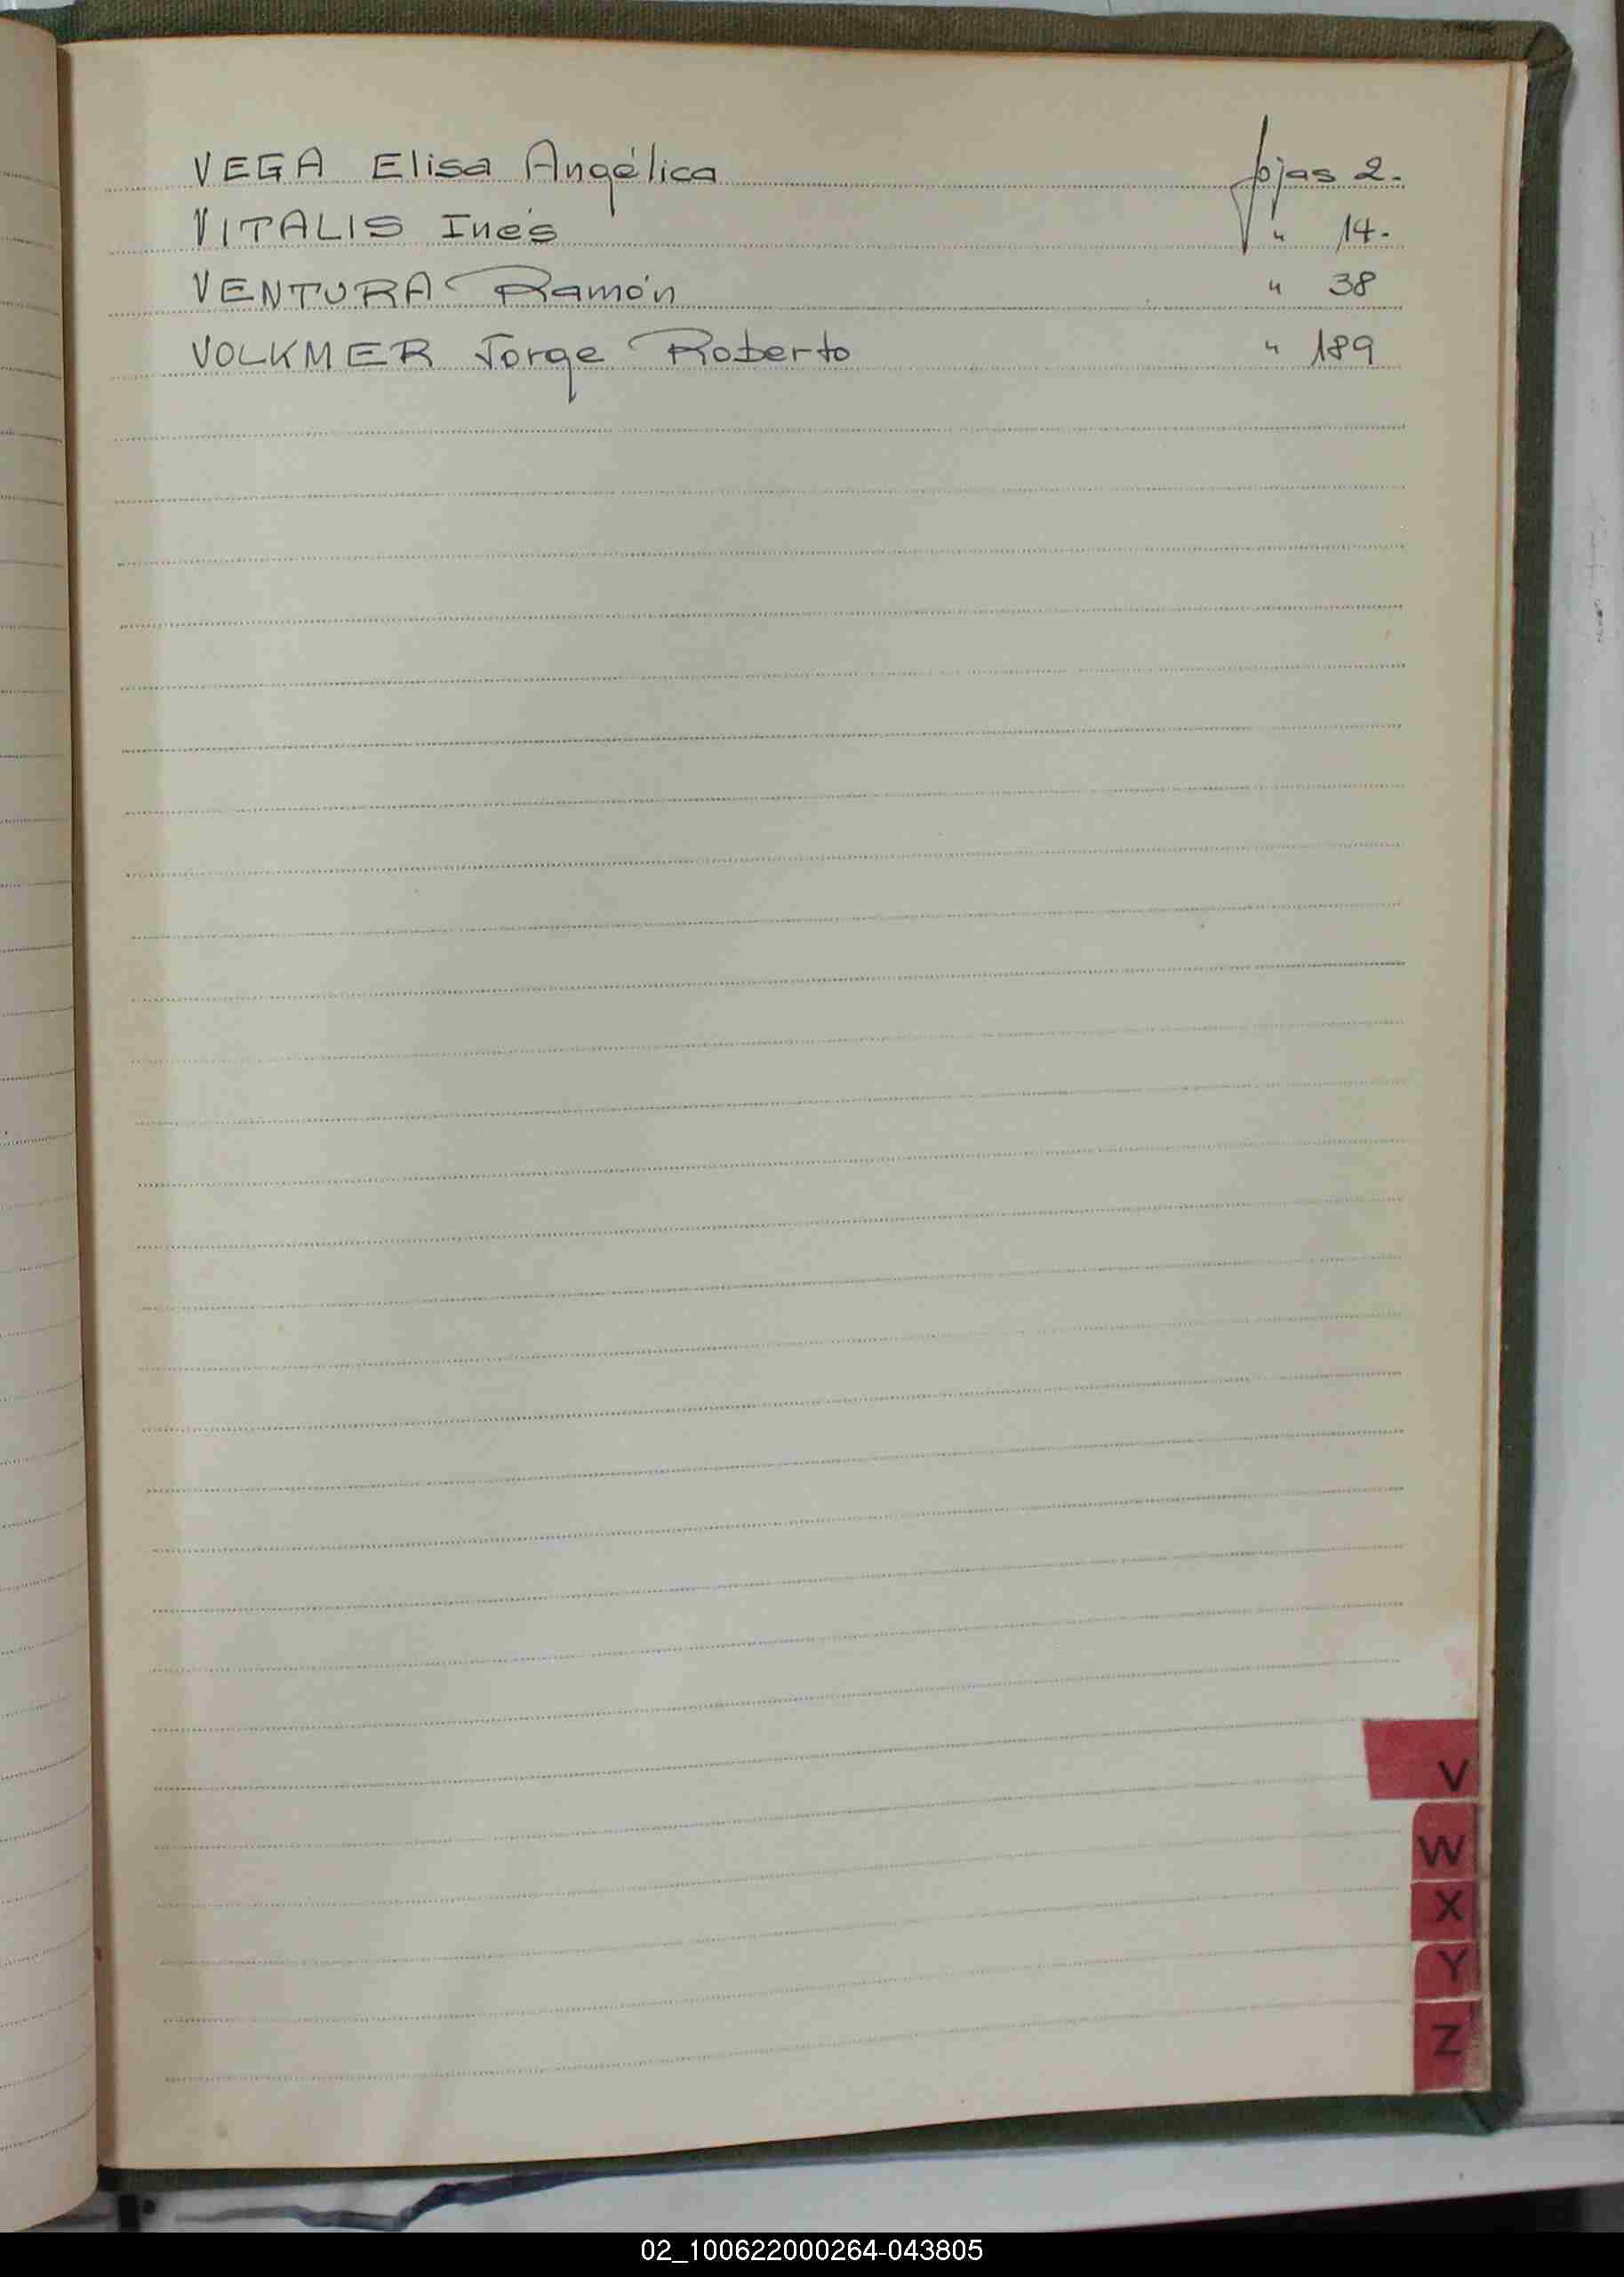 VEGA Elisa Angélica fojas 2.
VITALIS Inés " 14.
VENTURA Ramón " 38
VOLKMER Jorge Roberto " 189
V
W
X
Y
Z
02_100622000264-043805